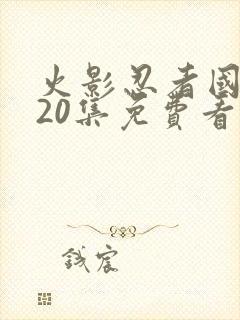 火影忍者國
20集免費看
錢宸